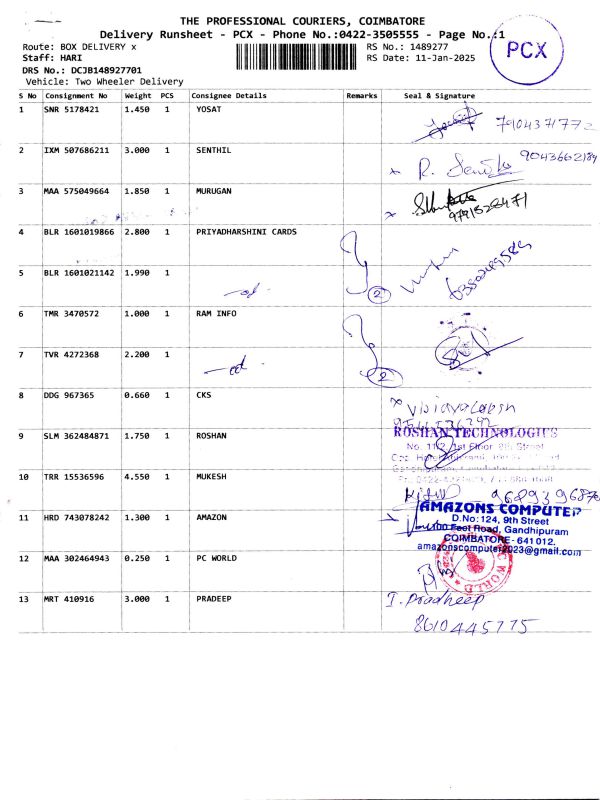 THE PROFESSIONAL COURIERS, COIMBATORE
Delivery Runsheet - PCX - Phone No.:0422-3505555 - Page No.:1
PCX
Route: BOX DELIVERY x
RS No.: 1489277
Staff: HARI
RS Date: 11-Jan-2025
DRS No.: DCJB148927701
Vehicle: Two Wheeler Delivery
S No Consignment No Weight PCS Consignee Details Remarks Seal & Signature
1 SNR 5178421 1.450 1 YOSAT
7904371772
2 IXM 507686211 3.000 1 SENTHIL
9043662184
3 MAA 575049664 1.850 1 MURUGAN
4 BLR 1601019866 2.800 1 PRIYADHARSHINI CARDS
5 BLR 1601021142 1.990 1
2
6 TMR 3470572 1.000 1 RAM INFO
7 TVR 4272368 2.200 1
2
8 DDG 967365 0.660 1 CKS
9 SLM 362484871 1.750 1 ROSHAN
ROSHAN TECHNOLOGIES
10 TRR 15536596 4.550 1 MUKESH
9629396870
11 HRD 743078242 1.300 1 AMAZON
AMAZONS COMPUTER
D.No: 124, 9th Street
East Road, Gandhipuram
COIMBATORE - 641 012.
amazonscomputer2023@gmail.com
12 MAA 302464943 0.250 1 PC WORLD
13 MRT 410916 3.000 1 PRADEEP
I. Pradheep
8610445775